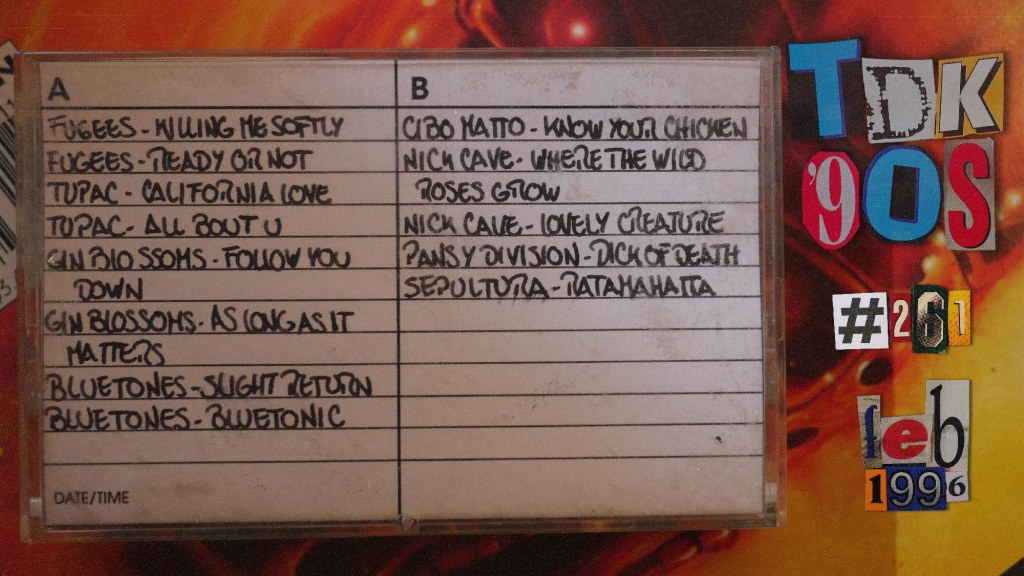 A
FUGEES - KILLING ME SOFTLY
FUGEES - READY OR NOT
TUPAC - CALIFORNIA LOVE
TUPAC - ALL BOUT U
GIN BLOSSOMS - FOLLOW YOU
DOWN
GIN BLOSSOMS - AS LONG AS IT
MATTERS
BLUETONES - SLIGHT RETURN
BLUETONES - BLUETONIC
DATE/TIME
B
CIBO MATTO - KNOW YOUR CHICKEN
NICK CAVE - WHERE THE WILD
ROSES GROW
NICK CAVE - LOVELY CREATURE
PANSY DIVISION - DICK OF DEATH
SEPULTURA - RATAMAHATTA
TDK
'90S
#261
feb
1996